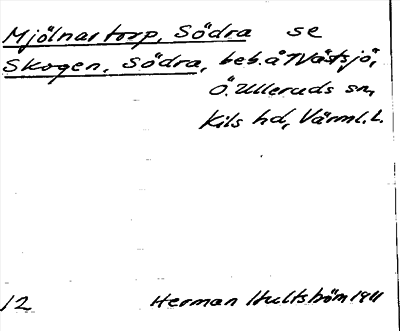 Mjölnartorp, Södra se
Skogen, Södra, beb. å Västsjö,
Ö. Ulleruds sn,
Kils hd, Värml. l.
12 Herman Hultström 1911